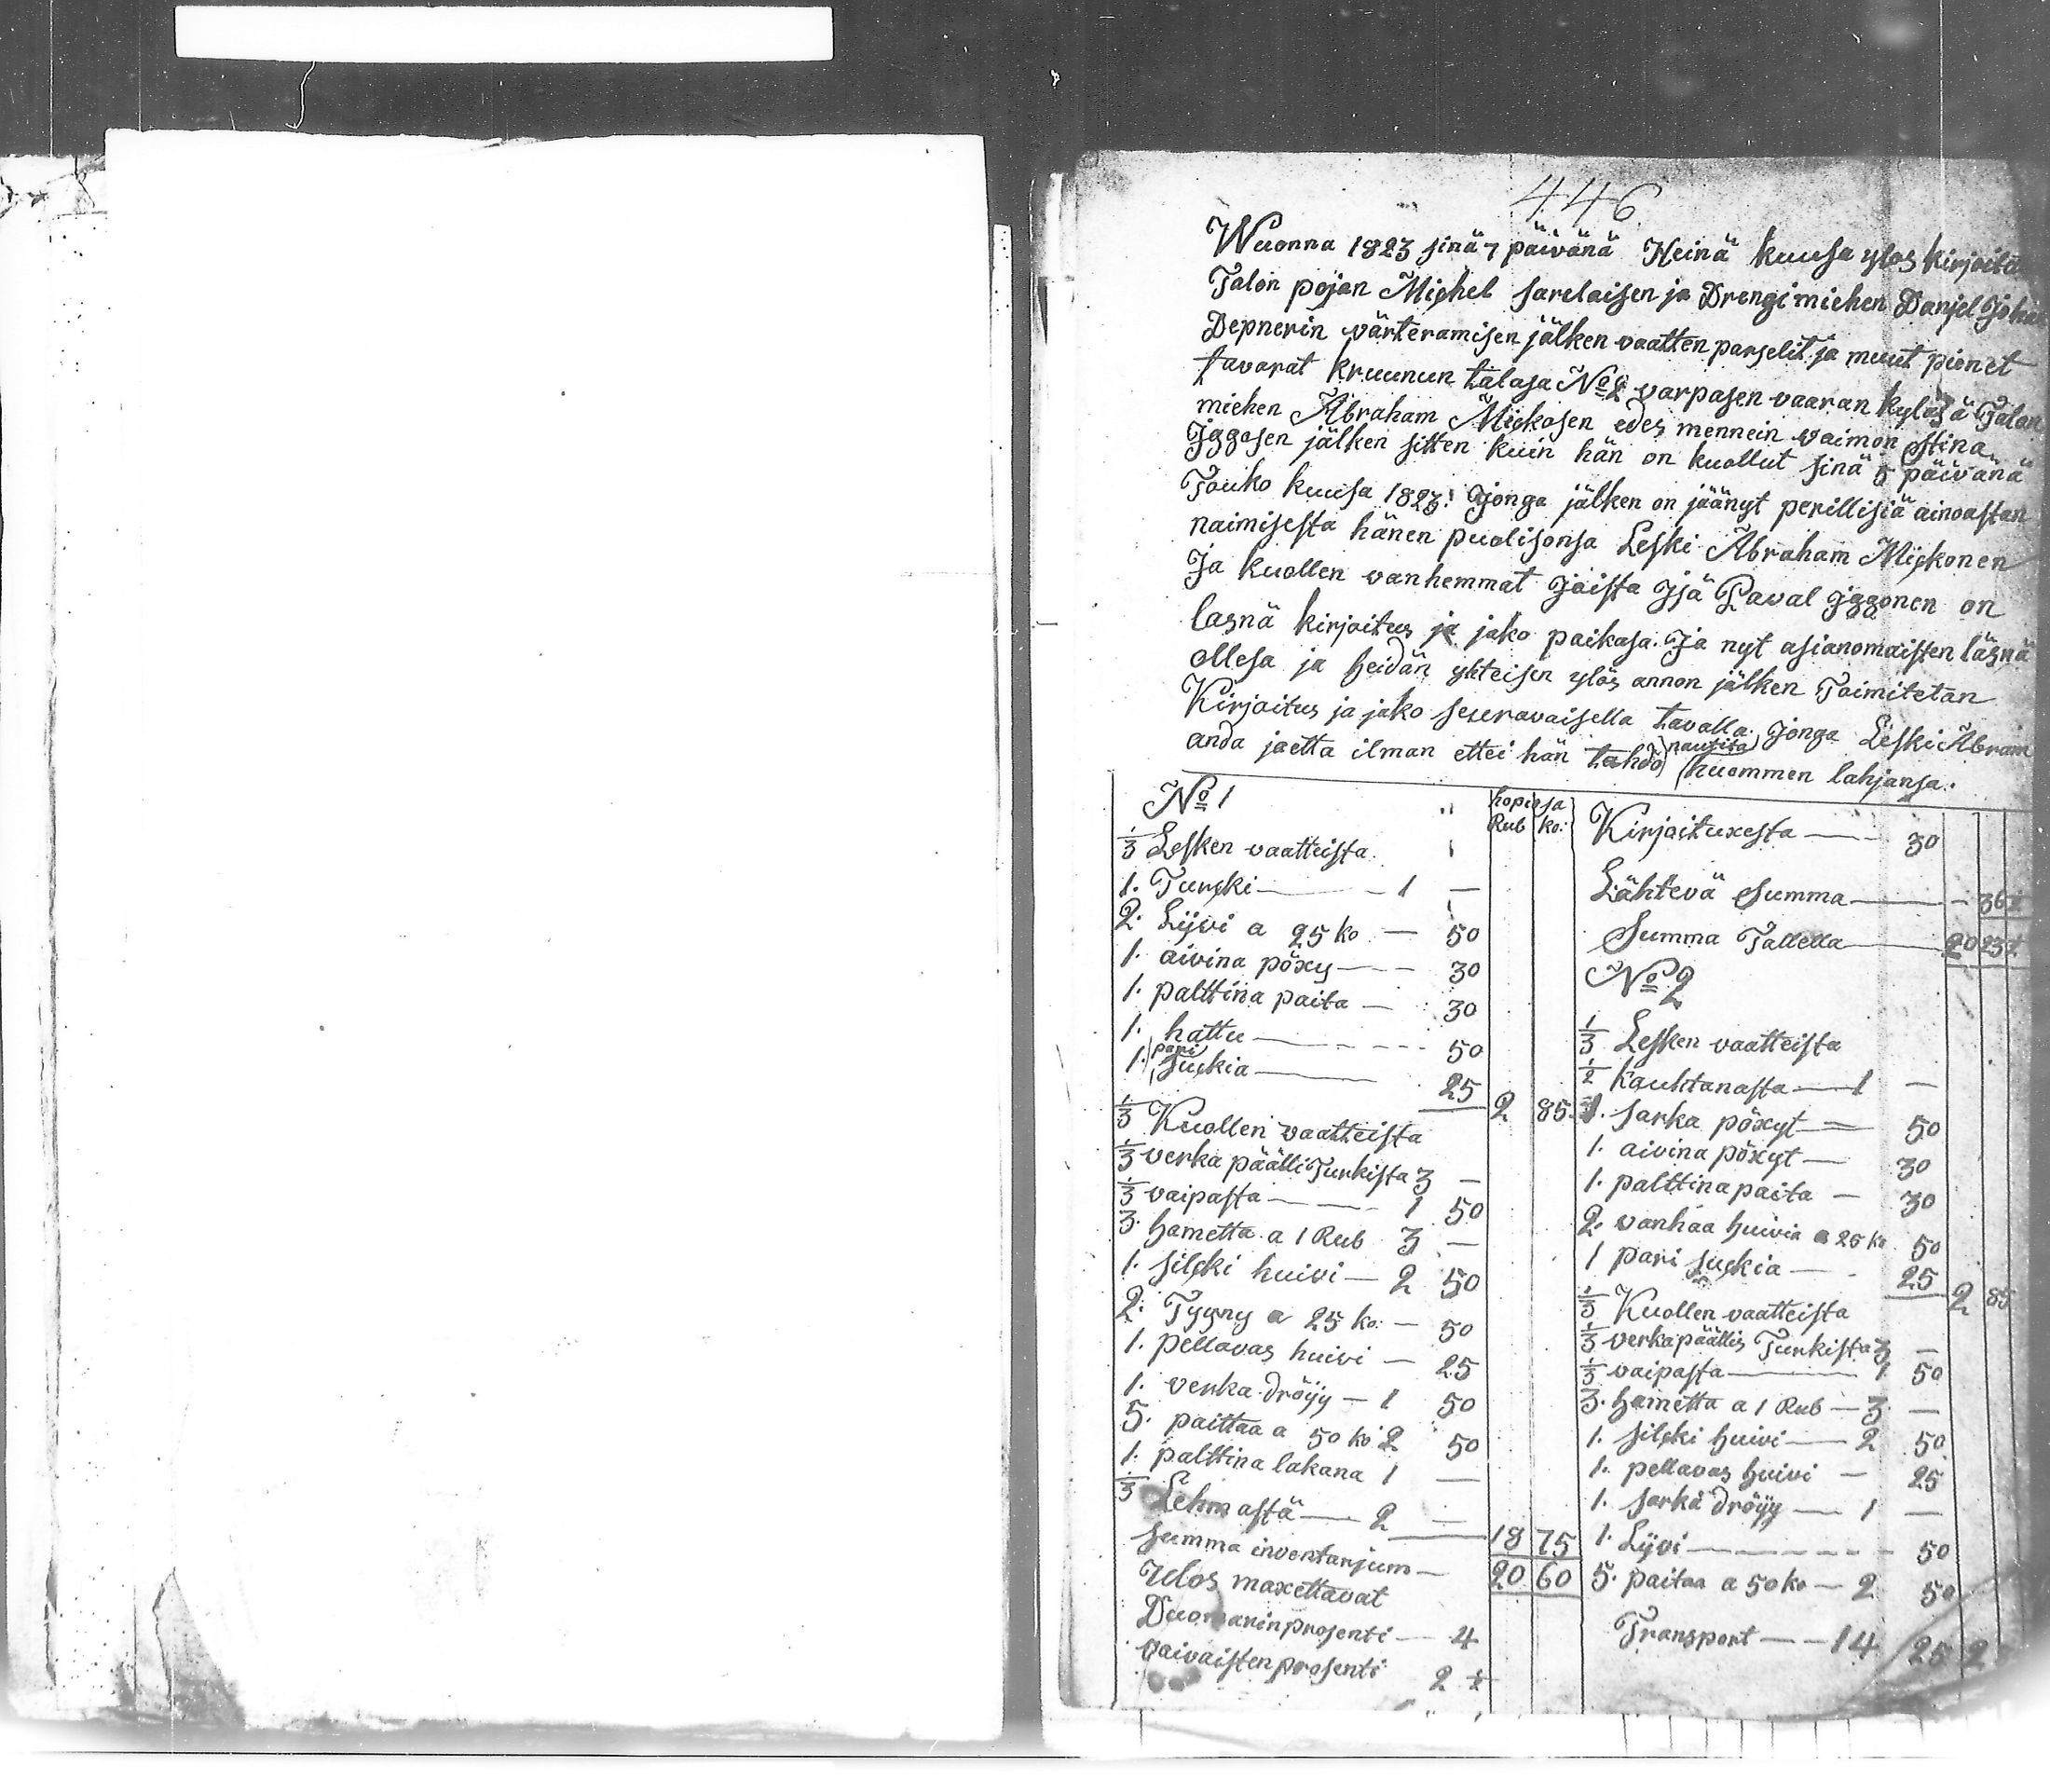 446
Wuonna 1823 sinä 7 päivänä Heinä kuusa ylos kirjoitet
Talon pojan Michel sarelaisen ja Drengimiehen Danjel Johan
Depnerin värteramisen jälken vaatten parselit ja muut pienet
tavarat kruunun talosa No 2 varpasen vaaran kyläsä Talon
miehen Abraham Mickosen edes mennein vaimon Stina
Iggosen jälken sitten kuin hän on kuollut sinä 5 päivänä
Touko kuusa 1823: Jonga jälken on jäänyt perillisiä ainoastan
naimisesta hänen puolisonsa Leski Abraham Mickonen
Ja kuollen vanhemmat Joista Isä Paval Iggonen on
lasnä kirjoitus ja jako paikasa. Ja nyt asianomaisten läsnä
ollesa ja heidän yhteisen ylös annon jälken Toimitetan
Kirjoitus ja jako seuravaisella tavalla. Jonga Leski Abram
anda jaetta ilman ettei hän tahdo nautita huommen lahjansa.
No 1 hopiasa
Rub ko:
1/3 Lesken vaatteista
1. Turcki — 1 —
2. Lijvi a 25 ko — 50
1. aivina pöxy — 30
1. palttina paita — 30
1. hattu — 50
1. pari suckia — 25 2 85
1/3 Kuollen vaatteista
1/3 verka päälli Turkista 3 —
1/3 vaipasta — 1 50
3. hametta a 1 Rub 3 —
1. silcki huivi — 2 50
2. Tygny a 25 ko: — 50
1. pellavas huivi — 25
1. verka dröijy — 1 50
5. paittaa a 50 ko 2 50
1. palttina lakana 1 —
1/3 Lehmästä — 2 — 18 75
Summa inventarjum — 20 60
Ulos maxettavat
Duomarin prosenti — 4
vaivaisten prosenti 2 1/2
Kirjoituxesta — 30
Lähtevä Summa — 36 1/2
Summa Tallella — 20 23 1/2
No 2
1/3 Lesken vaatteista
1/2 kauhtanasta — 1 —
1. sarka pöxyt — 50
1. aivina pöxyt — 30
1. palttina paita — 30
2. vanhaa huivia a 25 ko 50
1 pari suckia — 25 2 85
1/3 Kuollen vaatteista
1/3 verka päällis Turkista 3 —
1/3 vaipasta — 1 50
3. hametta a 1 Rub — 3 —
1. silcki huivi — 2 50
1. pellavas huivi — 25
1. sarka dröijy — 1 —
1. Lijvi — 50
5. paitaa a 50 ko — 2 50
Transport — 14 25 2